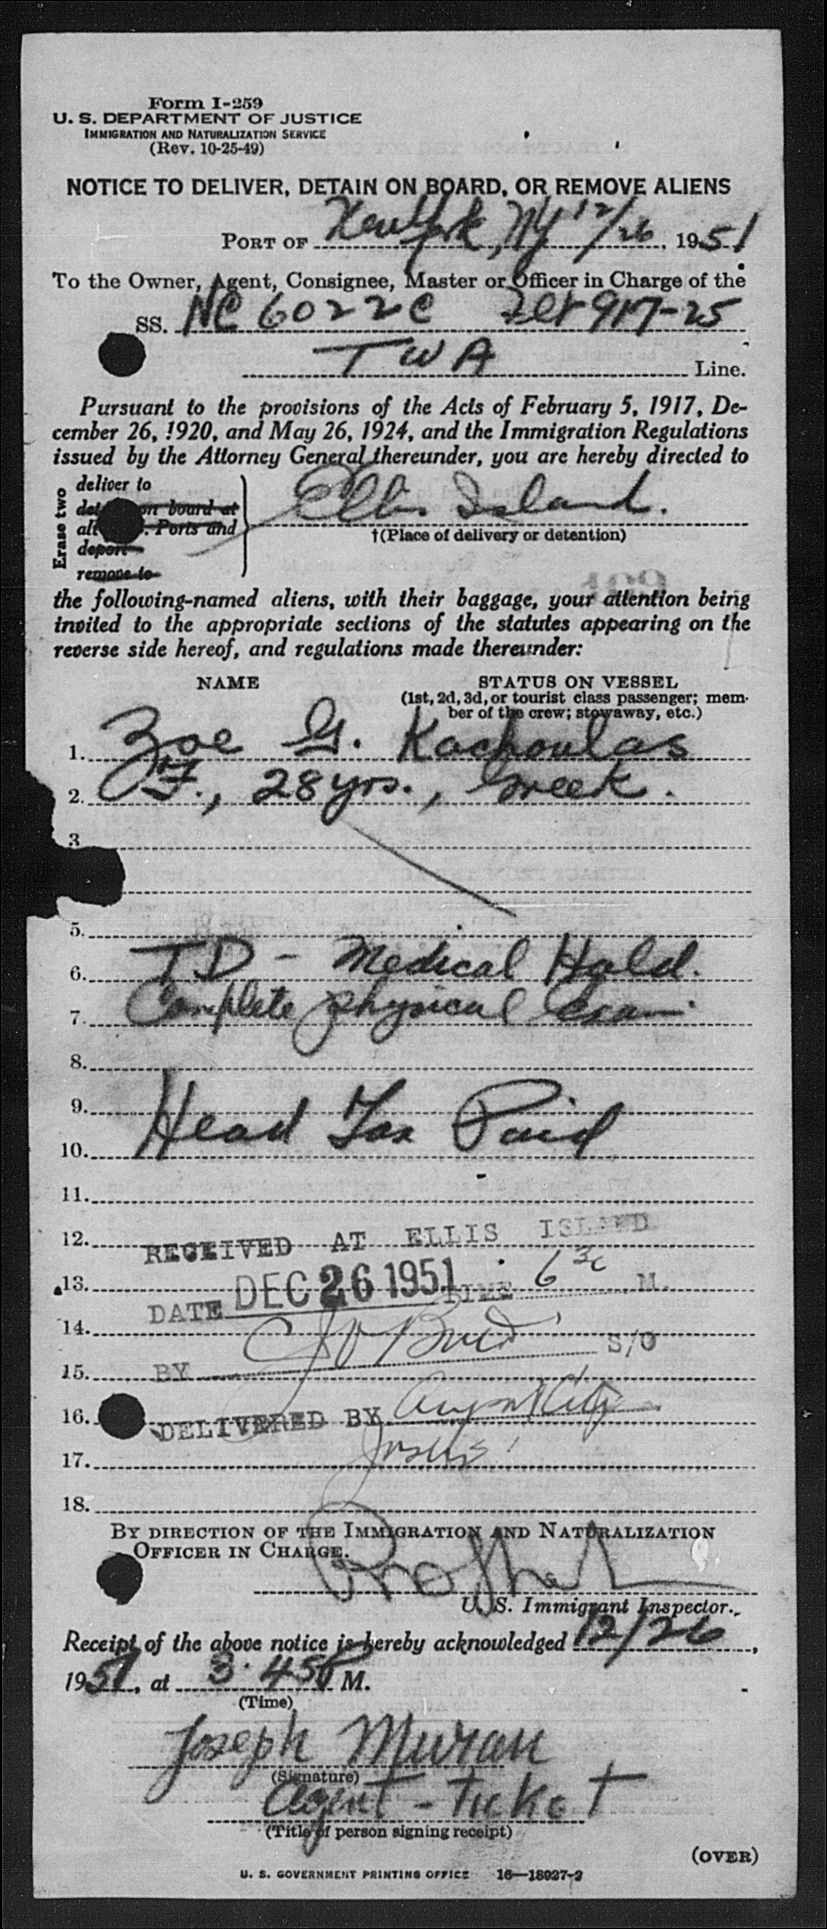 Form I-259
U. S. DEPARTMENT OF JUSTICE
IMMIGRATION AND NATURALIZATION SERVICE
(Rev. 10-25-49)
NOTICE TO DELIVER, DETAIN ON BOARD, OR REMOVE ALIENS
PORT OF New York, NY 12/26, 1951
To the Owner, Agent, Consignee, Master or Officer in Charge of the
SS. NC 6022C 917-25
TWA Line.
Pursuant to the provisions of the Acts of February 5, 1917, De-
cember 26, 1920, and May 26, 1924, and the Immigration Regulations
issued by the Attorney General thereunder, you are hereby directed to
Erase two
deliver to
on board at
Ports and
deport
remove to
Ellis Island.
†(Place of delivery or detention)
the following-named aliens, with their baggage, your attention being
invited to the appropriate sections of the statutes appearing on the
reverse side hereof, and regulations made thereunder:
NAME STATUS ON VESSEL
(1st, 2d, 3d, or tourist class passenger; mem-
ber of the crew; stowaway, etc.)
1. Zoe G. Kachoulas
2. F., 28 yrs., Greek.
3.
5.
6. T.D - Medical Hold.
7. Complete physical Exam.
8.
9. Head Tax Paid
10.
11.
12. RECEIVED AT ELLIS ISLAND
13. DATE DEC 26 1951 TIME 6 30 M.
14.
15. BY S/O
16. DELIVERED BY
17.
18.
BY DIRECTION OF THE IMMIGRATION AND NATURALIZATION
OFFICER IN CHARGE.
U. S. Immigrant Inspector.
Receipt of the above notice is hereby acknowledged 12/26,
1951, at 3:45 P M.
(Time)
Joseph Muran
(Signature)
Agent - Ticket
(Title of person signing receipt)
(OVER)
U. S. GOVERNMENT PRINTING OFFICE 16—18027-2